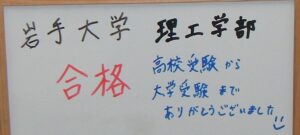 岩手大学 理工学部
合格
高校受験から
大学受験まで
ありがとうございました